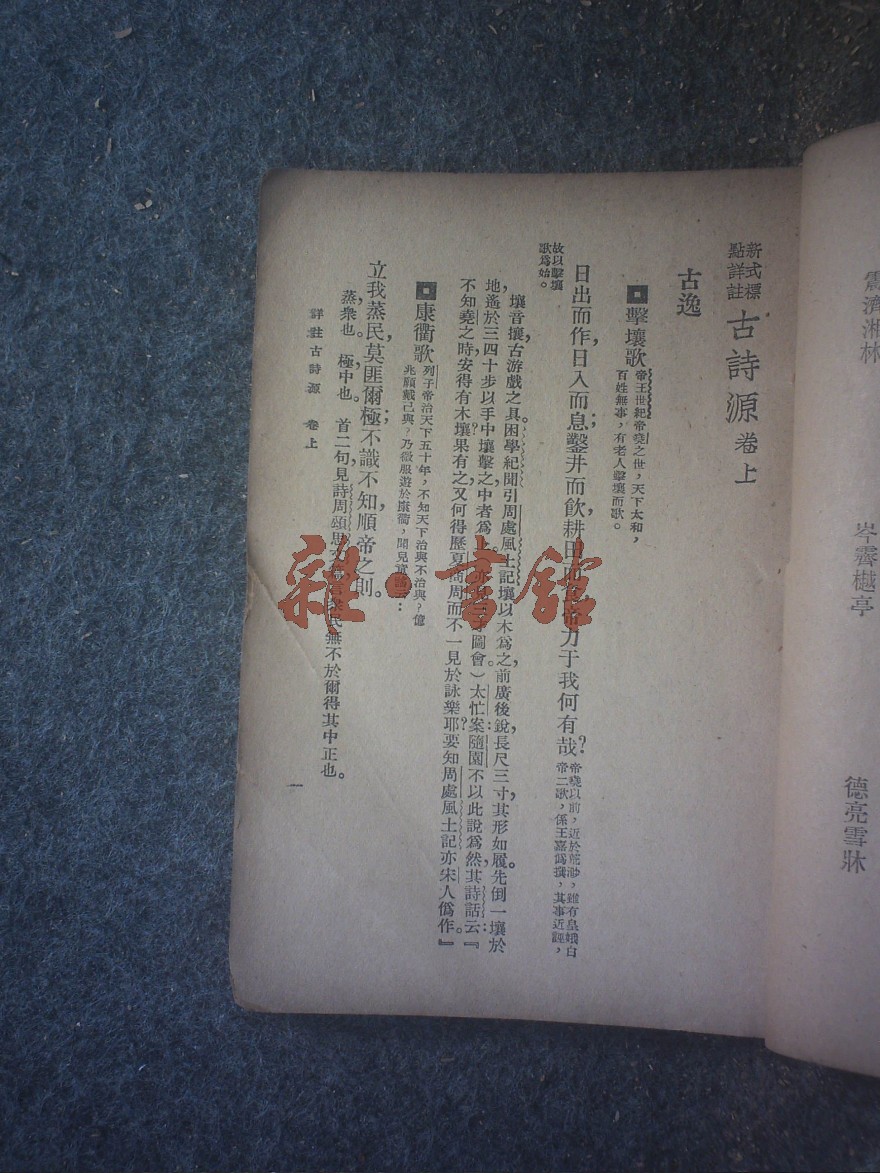 新式標
點詳註 古詩源 卷上
古逸
擊壤歌 帝王世紀帝堯之世，天下太和，
百姓無事，有老人擊壤而歌。
日出而作，日入而息；鑿井而飲，耕田而食，帝力于我何有哉？ 帝堯以前，近於荒渺，雖有皇娥白
帝二歌，係王嘉僞撰，其事近誣，
故以擊壤
歌爲始。
壤音攘，古游戲之具。困學紀聞引周處風土記：壤以木爲之，前廣後銳，長尺三寸，其形如履。先倒一壤於
地，遙於三四十步以手中壤擊之，中者爲上。亦見三才圖會）太忙案：隨園不以此說爲然，其詩話云：『
不知堯之時，安得有木壤？果有之，又何得歷夏商周而不一見於詠樂耶？要知周處風土記亦宋人僞作。』
康衢歌 列子帝治天下五十年，不知天下治與不治與？億
兆願戴己與？乃微服遊於康衢，聞兒童謠云：
立我蒸民，莫匪爾極；不識不知，順帝之則。
蒸，衆也。 極，中也。 首二句，見詩周頌思文篇，言衆民無不於爾得其中正也。
詳註古詩源 卷上
一
雜·書館
霽濟湘林
岑霽樾亭
德亮雪牀